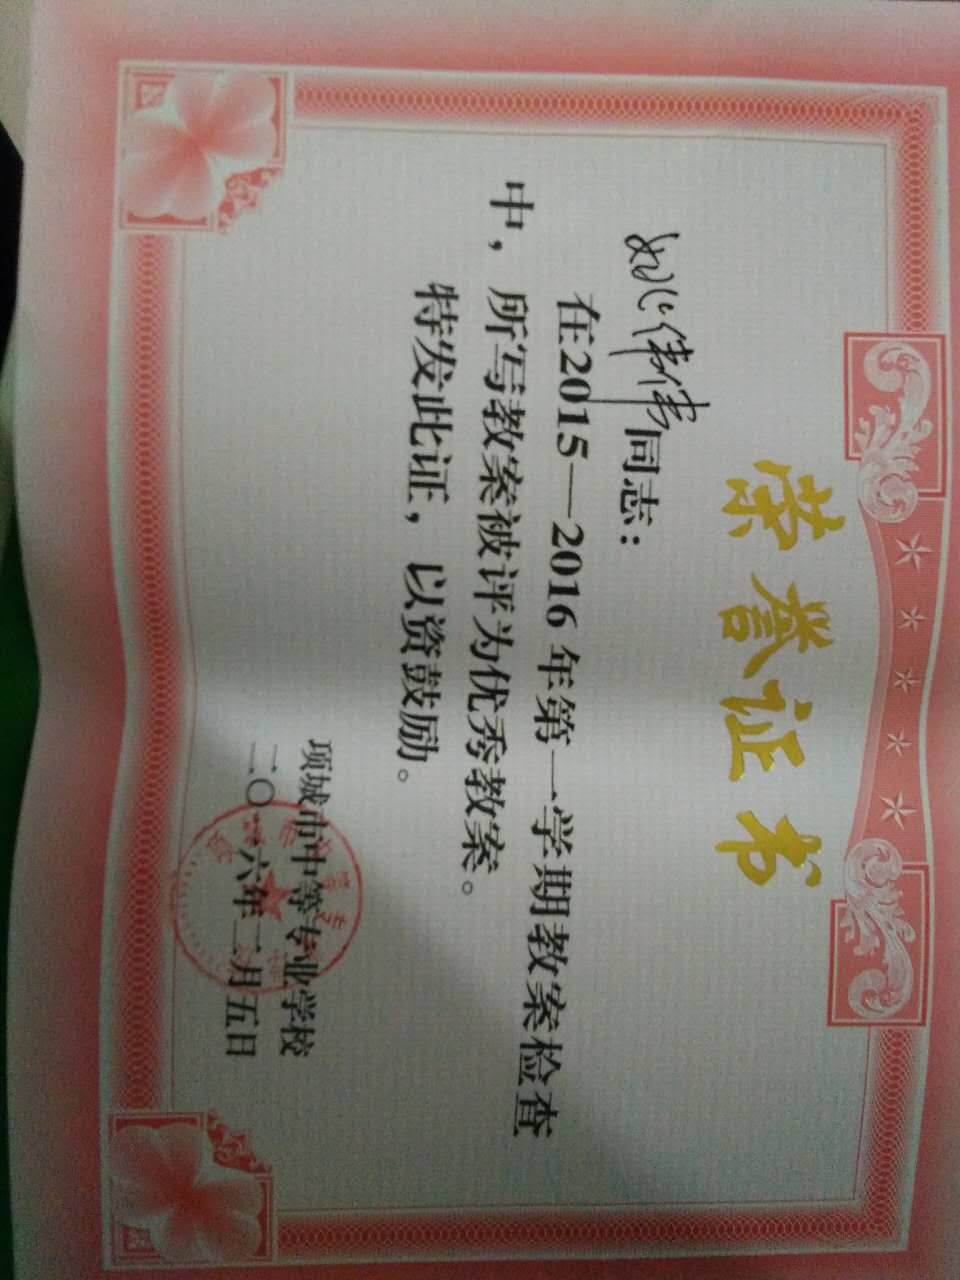 荣誉证书
姚伟伟同志：
在2015—2016年第一学期教案检查
中，所写教案被评为优秀教案。
特发此证，以资鼓励。
项城市中等专业学校
二〇一六年二月五日